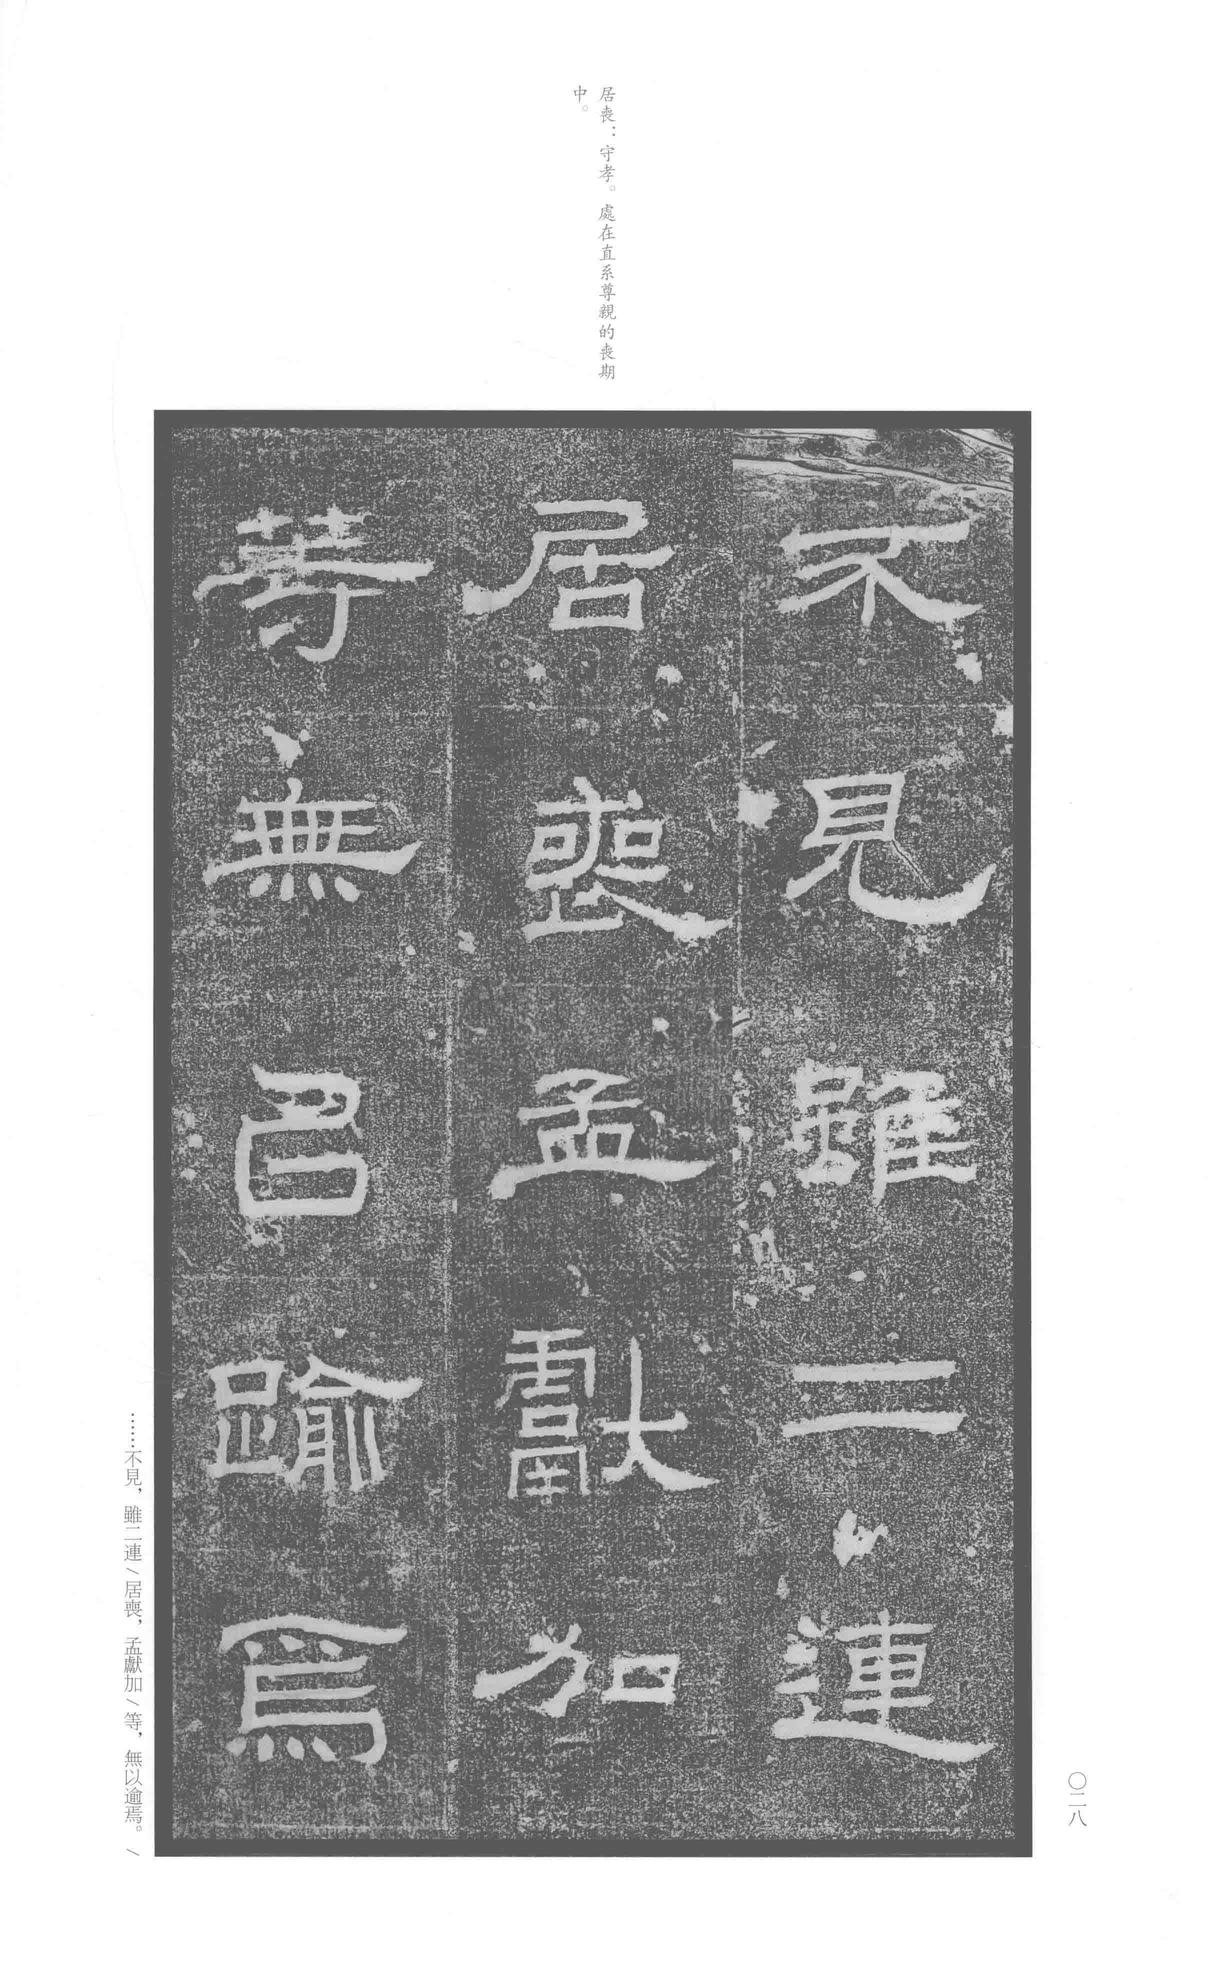 居喪：守孝。處在直系尊親的喪期
中。
不見雖二連
居喪孟獻加
等無㠯踰焉
……不見，雖二連\居喪，孟獻加\等，無以逾焉。\
〇二八